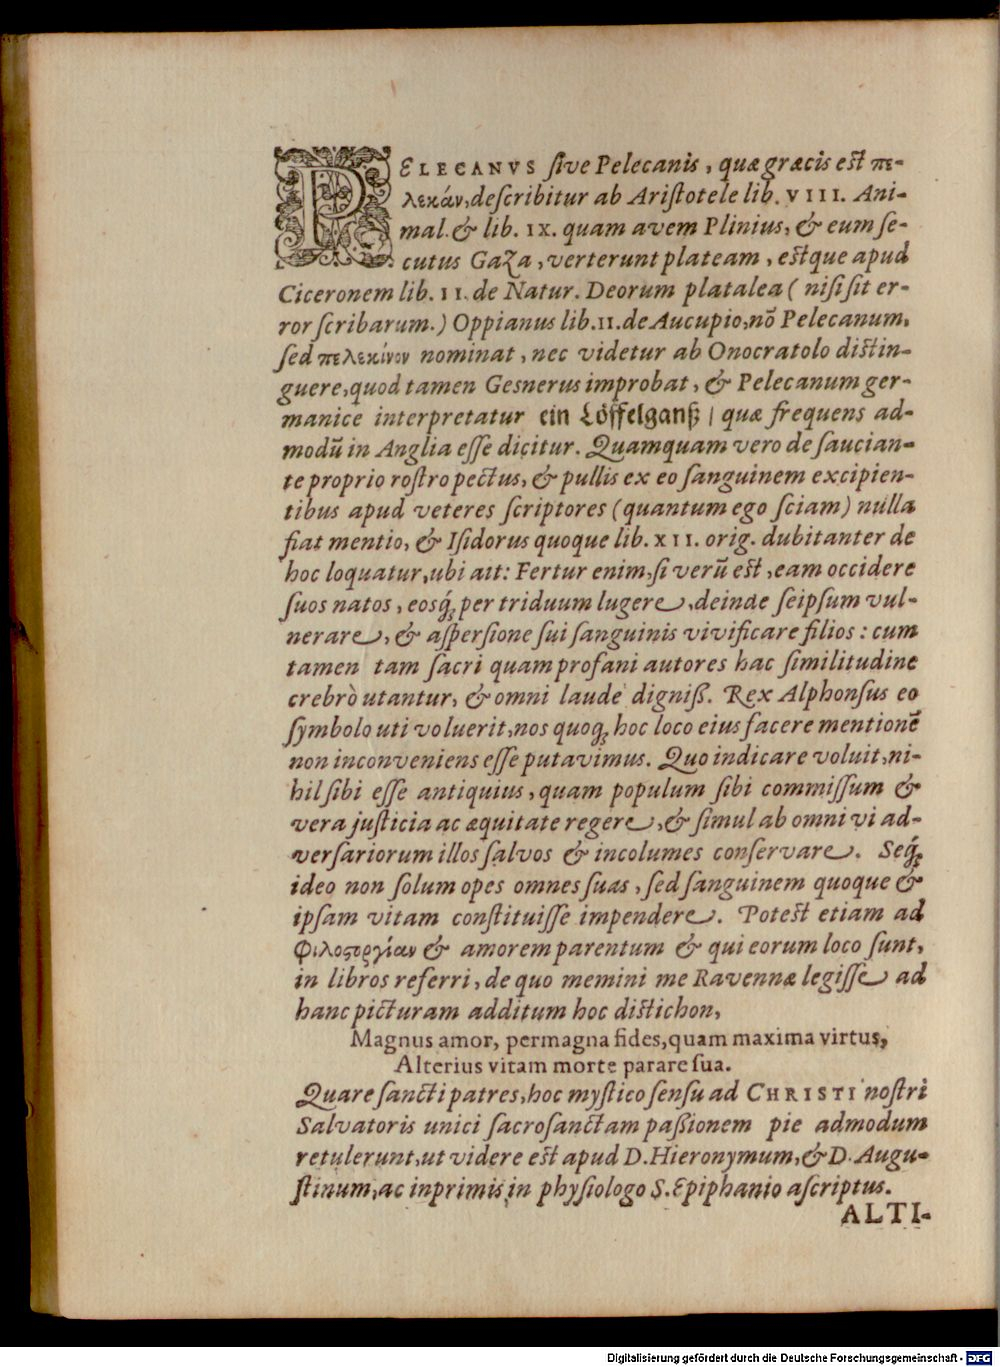 PELECANVS sive Pelecanis, quæ græcis est πε-
λεκάν, describitur ab Aristotele lib. VIII. Ani-
mal. & lib. IX. quam avem Plinius, & eum se-
cutus Gaza, verterunt plateam, estque apud
Ciceronem lib. II. de Natur. Deorum platalea ( nisi sit er-
ror scribarum.) Oppianus lib. II. de Aucupio, nõ Pelecanum,
sed πελεκίνον nominat, nec videtur ab Onocratolo distin-
guere, quod tamen Gesnerus improbat, & Pelecanum ger-
manice interpretatur ein Löffelganß / quæ frequens ad-
modũ in Anglia esse dicitur. Quamquam vero de saucian-
te proprio rostro pectus, & pullis ex eo sanguinem excipien-
tibus apud veteres scriptores (quantum ego sciam) nulla
fiat mentio, & Isidorus quoque lib. XII. orig. dubitanter de
hoc loquatur, ubi ait: Fertur enim, si verũ est, eam occidere
suos natos, eosq́; per triduum lugere, deinde seipsum vul-
nerare, & aspersione sui sanguinis vivificare filios : cum
tamen tam sacri quam profani autores hac similitudine
crebrò utantur, & omni laude digniß. Rex Alphonsus eo
symbolo uti voluerit, nos quoq; hoc loco eius facere mentionẽ
non inconveniens esse putavimus. Quo indicare voluit, ni-
hil sibi esse antiquius, quam populum sibi commissum &
vera justicia ac æquitate regere, & simul ab omni vi ad-
versariorum illos salvos & incolumes conservare. Seq́;
ideo non solum opes omnes suas, sed sanguinem quoque &
ipsam vitam constituisse impendere. Potest etiam ad
Φιλοςοργίαν & amorem parentum & qui eorum loco sunt,
in libros referri, de quo memini me Ravennæ legisse ad
hanc picturam additum hoc distichon,
Magnus amor, permagna fides, quam maxima virtus,
Alterius vitam morte parare sua.
Quare sancti patres, hoc mystico sensu ad CHRISTI nostri
Salvatoris unici sacrosanctam paßionem pie admodum
retulerunt, ut videre est apud D. Hieronymum, & D. Augu-
stinum, ac inprimis in physiologo S. Epiphanio ascriptus.
ALTI-
Digitalisierung gefördert durch die Deutsche Forschungsgemeinschaft - DFG